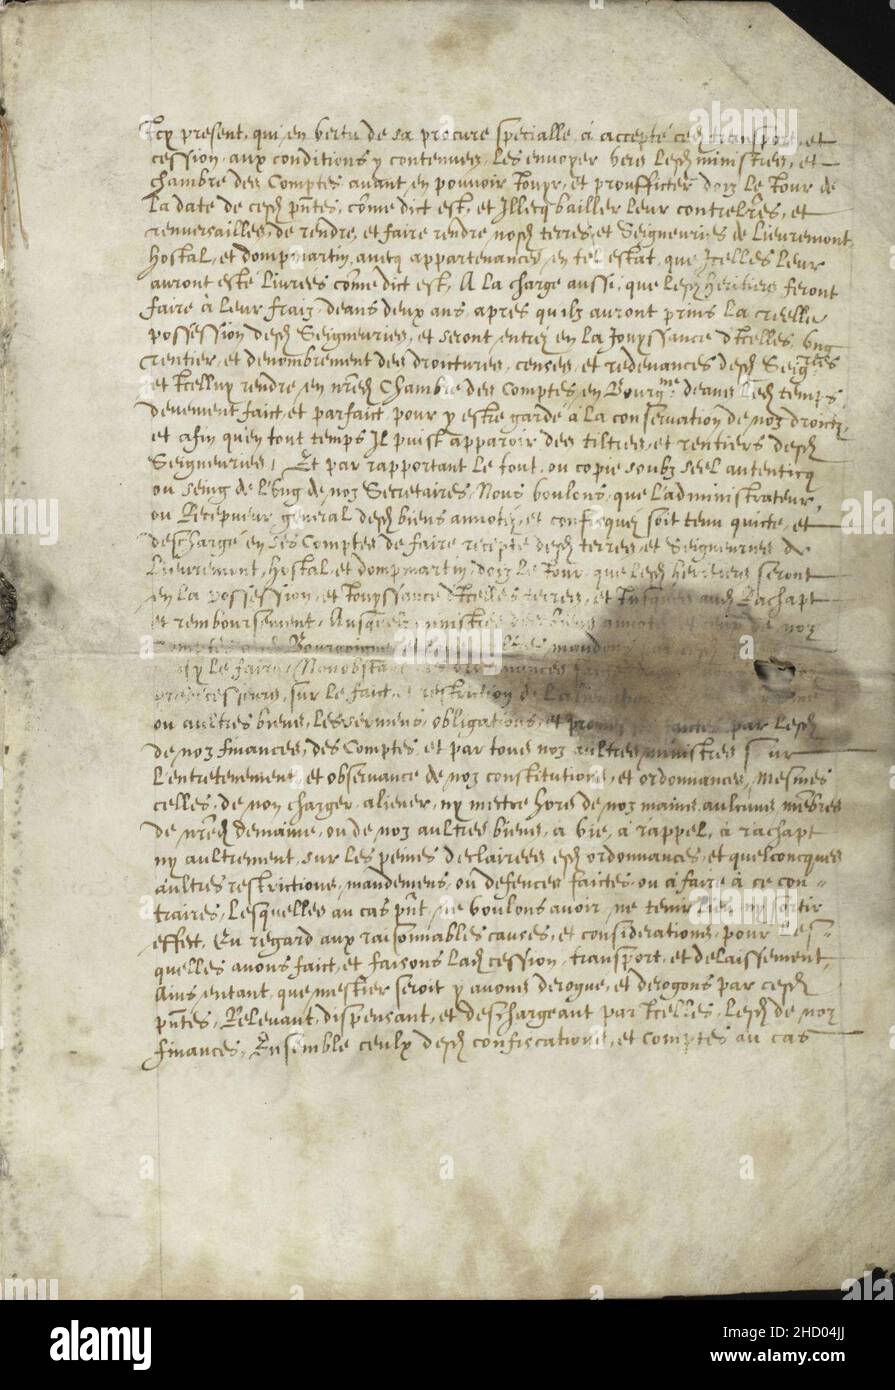 Icy present, qui en vertu de sa procure specialle a accepté ced transport, et
cession, aux conditions y contenues, les envoyer vers lesd ministres, et
chambre des Comptes aiant en pouvoir Jouyr, et prouffiter dois le Jour de
La date de cesd pntes, cõme dict est, et Illecq bailler leur contrelres, et
renversailles, de rendre, et faire rendre nosd terres, et Seigneuries de Lieuremont,
hostal, et dompmartin, avecq appartenances, en tel estat, que Icelles leur
auront esté livrees cõme dict est, A la charge aussi, que lesd heritiers feront
faire à leur fraiz, deans deux ans, apres qu'ilz auront prins la reelle
possession desd Seigneuries, et seront entrez en la Jouyssance d'Icelles, Ung
rentier, et denombrement des droictures, censes, et redevances desd Seigries
et Icelluy rendre, en nred Chambre des Comptes, en Bourgne deans led temps,
deuement faict, et parfaict, pour y estre gardé à la conservation de noz droictz,
et afin qu'en tout temps Il puist apparoir des tiltres, et rentiers desd
Seigneuries, Et par rapportant le tout, ou copie soubz seel autenticq
ou seing de l'Ung de noz Secretaires, Nous voulons, que l'administrateur,
ou Recepveur general desd biens annotez, et confisquez soit tenu quicte, et
deschargé en ses Comptes de faire recepte desd terres, et Seigneuries de
Lieuremont, hostal, et dompmartin, dois le Jour, que lesd heritiers seront
en la possession, et Jouyssance d'Icelles terres, et Jusques aud Rachapt
et remboursement, Ausquelz ministres des biens et ceulx de noz
comptes aud Bourgoigne, et mandons par
le faire, Nonobstant ordonnances
predecesseurs, sur le faict, et restrinction de
ou aultres biens, les sermens, obligations, et par lesd
de noz finances, des Comptes, et par tous noz aultres ministres sur
L'entretenement, et observance de noz constitutions, et ordonnances, Mesmes
celles, de non charger, aliener, ny mectre hors de noz mains, aulcuns mẽbres
de nred demaine, ou de noz aultres biens, a vie, à rappel, à rachapt
ny aultrement, sur les peines declairees esd ordonnances, et quelconcques
aultres restrictions, mandemens, ou defences faictes, ou à faire à ce con-
traires, Lesquelles au cas pnt, ne voulons avoir, ne tenir lieu, ny sortir
effect, Eu regard aux raisonnables causes, et considerations, pour les-
quelles avons faict, et faisons lad cession, transport, et delaissement,
Ains, entant, que mestier seroit y avons derogue, et derogons par cesd
pntes, Relevant, dispensant, et deschargeant par Icelles, lesd de noz
finances, Ensemble ceulx desd confiscations, et comptes au cas
alamy
Image ID: 2HD04JJ
www.alamy.com